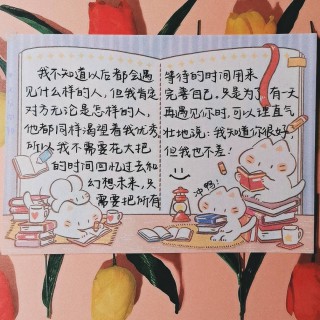 我不知道以后都会遇
见什么样的人，但我肯定
对方无论是怎样的人，
他都同样渴望着我优秀，
所以我不需要花大把
的时间回忆过去和
幻想未来，只
需要把所有
等待的时间用来
完善自己。只是为了有一天
再遇见你时，可以理直气
壮地说：我知道你很好，
但我也不差！
冲鸭！